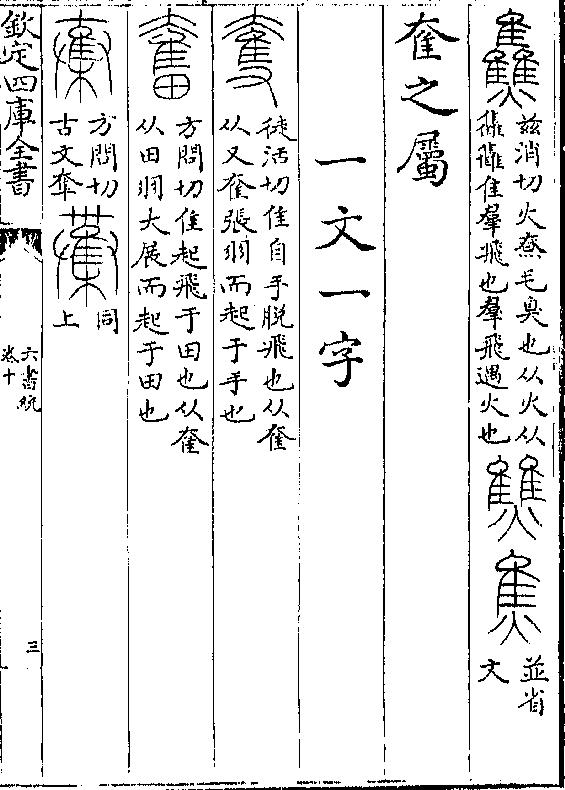 𤓪兹消切火燎毛臭也从火从
雥雥隹羣飛也羣飛遇火也
𤓬焦並省
文
奞之屬
一文一字
奪徒活切隹自手脱飛也从奞
从又奞張羽而起于手也
奮方問切隹起飛于田也从奞
从田羽大展而起于田也
方問切
古文奞
同
上
欽定四庫全書
六書統
卷十
三